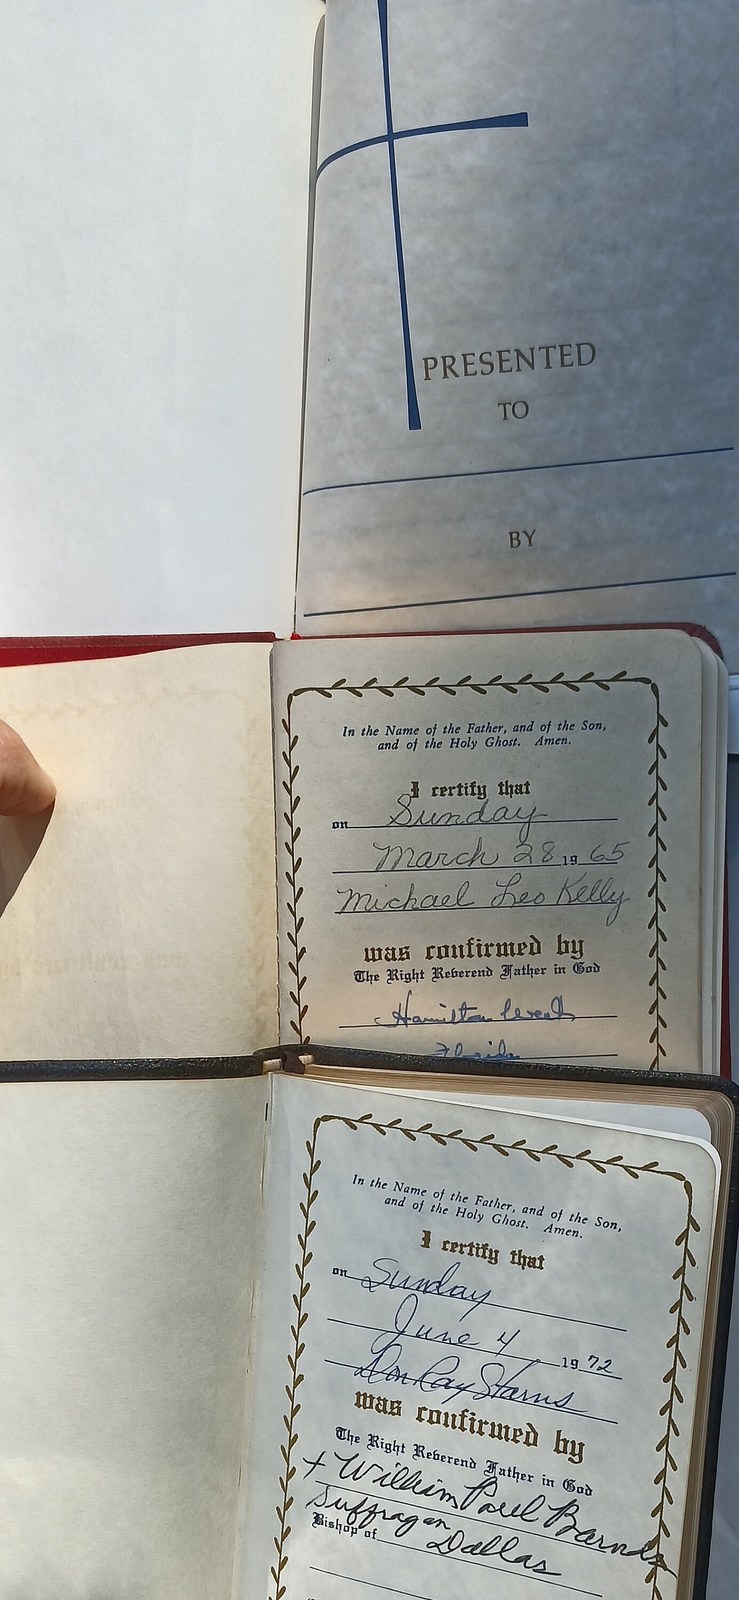 PRESENTED
TO
BY
In the Name of the Father, and of the Son,
and of the Holy Ghost. Amen.
I certify that
on Sunday
March 28 1965
Michael Leo Kelly
was confirmed by
The Right Reverend Father in God
Hamilton West
Florida
In the Name of the Father, and of the Son,
and of the Holy Ghost. Amen.
I certify that
on Sunday
June 4 1972
Don Ray Starns
was confirmed by
The Right Reverend Father in God
+ William Paul Barnds
Suffragan
Bishop of Dallas